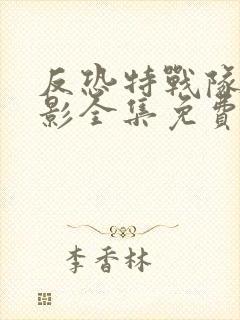 反恐特戰隊
影全集免費
李香林